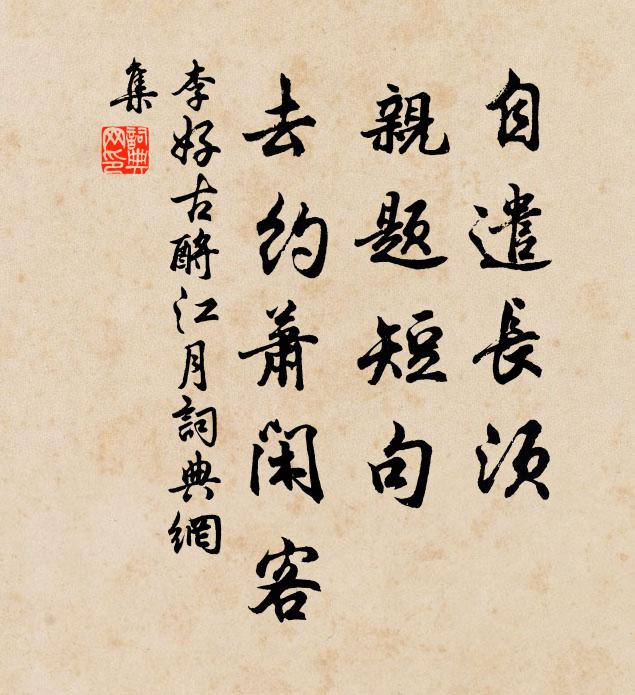 自遣長須
親題短句
去約蕭閑客
李好古酹江月詞典網
集
詞典
网印